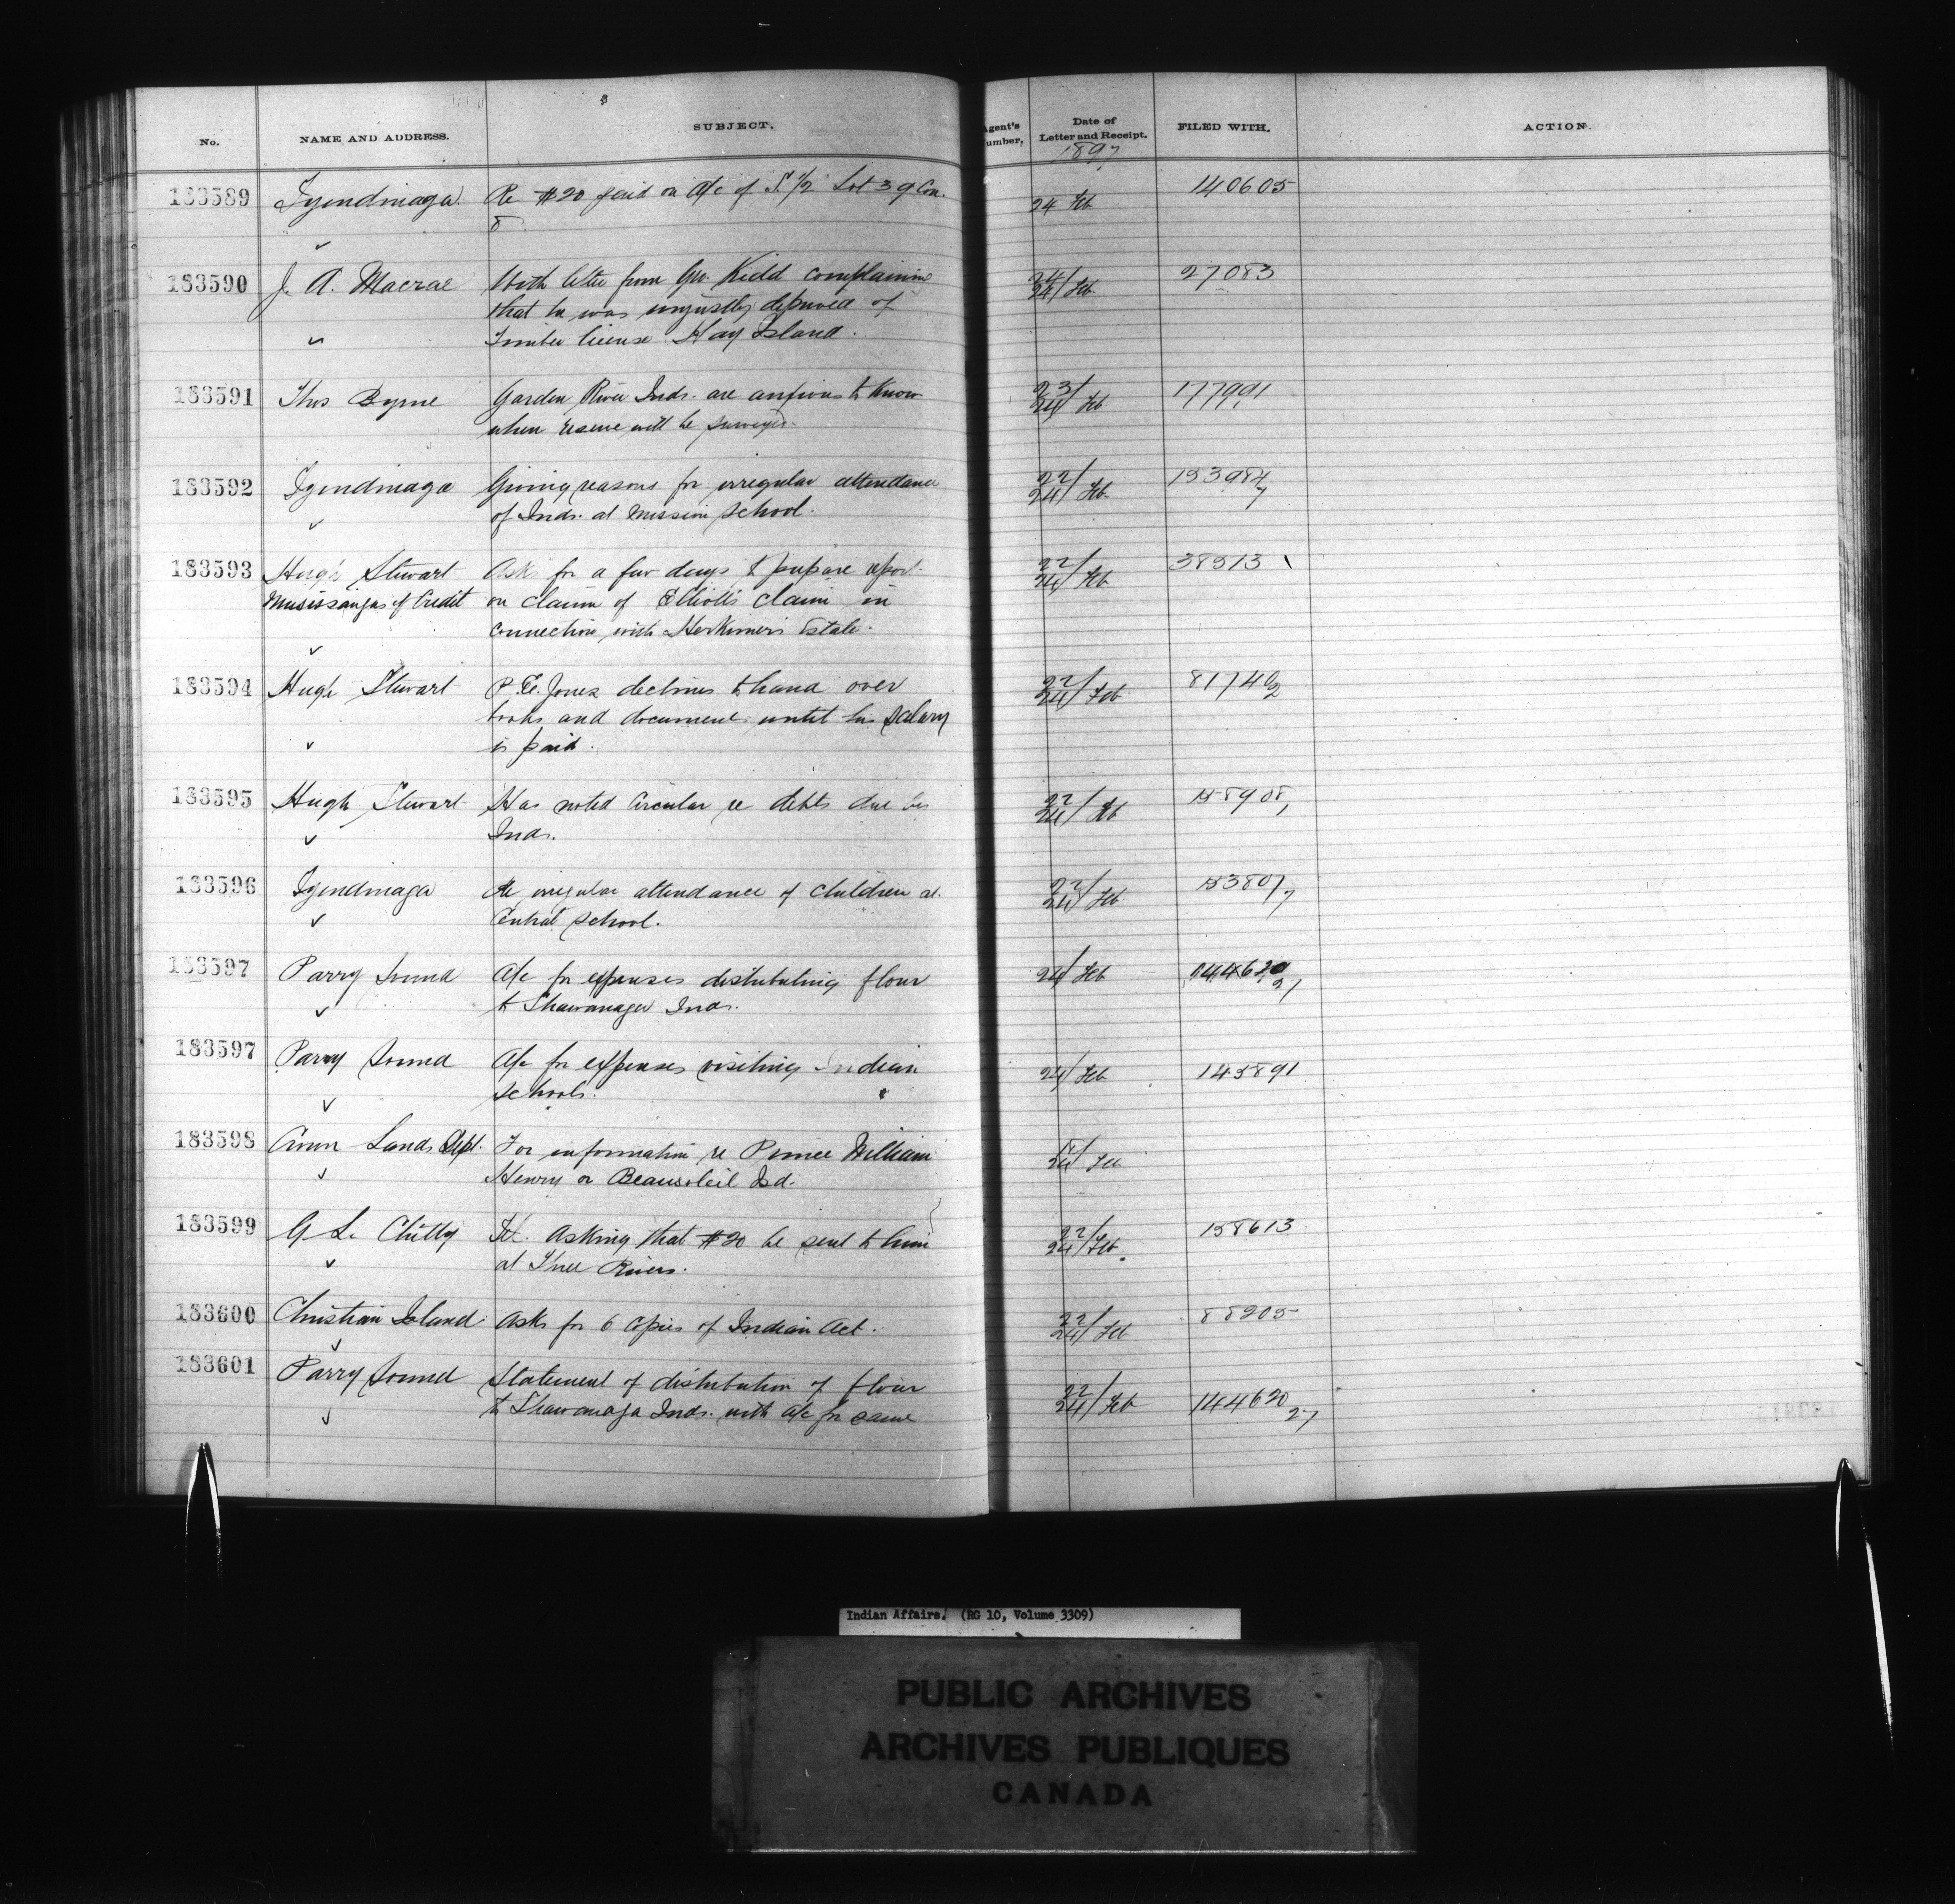 No.
NAME AND ADDRESS.
SUBJECT.
Agent's Number.
Date of Letter and Receipt.
FILED WITH.
ACTION.
1897
183589 Tyendinaga Re $20 paid on a/c of S. 1/2 Lot 39 Con. 24 Feb 140605
8
183590 J. A. Macrae With letter from Geo. Kidd complaining 24/24 Feb 27083
that he was unjustly deprived of
Timber license Hay Island.
183591 Thos Byrne Garden River Inds. are anxious to know 23/24 Feb 177991
when reserve will be surveyed.
183592 Tyendinaga Giving reasons for irregular attendance 22/24 Feb 153984
of Inds. at Mission School. 7
183593 Hugh Stewart Asks for a few days to prepare report 22/24 Feb 38513
Mississaugas of Credit on claim of Elliott's claim in
connection with Herkimer's Estate.
183594 Hugh Stewart P. E. Jones declines to hand over 22/24 Feb 81740
books and documents until his salary 2
is paid.
183595 Hugh Stewart Has noted Circular re debts due by 22/24 Feb 158908
Inds.
183596 Tyendinaga Re irregular attendance of children at 22/24 Feb 153807
Central School. 7
183597 Parry Sound A/c for expenses distributing flour 24/ Feb 144620
to Shawanaga Inds. 27
183597 Parry Sound A/c for expenses visiting Indian 24/ Feb 145891
Schools.
183598 Crown Lands Dept. For information re Prince William 24 Feb
Henry or Beausoleil Isd.
183599 G L. Chitty Tel. asking that $20 be sent to him 22/24 Feb. 158613
at Three Rivers.
183600 Christian Island Asks for 6 copies of Indian Act. 22/24 Feb 88205
183601 Parry Sound Statement of distribution of flour 22/24 Feb 144620
to Shawanaga Inds. with a/c for same 27
Indian Affairs. (RG 10, Volume 3309)
PUBLIC ARCHIVES
ARCHIVES PUBLIQUES
CANADA